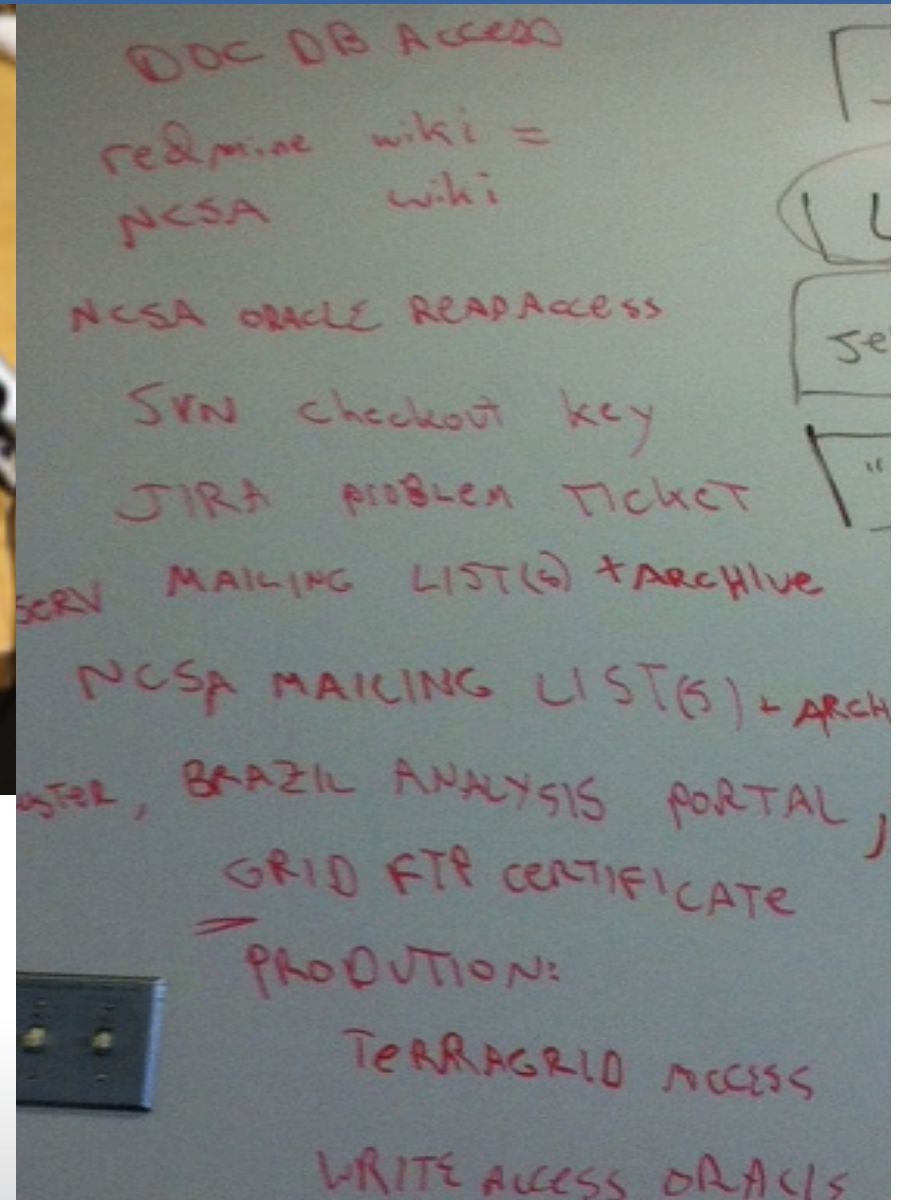 DOC DB ACCESS
redmine wiki =
NCSA wiki
NCSA ORACLE READ ACCESS
SVN checkout key
JIRA PROBLEM TICKET
SERV MAILING LIST(S) + ARCHIVE
NCSA MAILING LIST(S) + ARCH
, BRAZIL ANALYSIS PORTAL,
GRID FTP CERTIFICATE
PRODUTION:
TERRAGRID ACCESS
WRITE ACCESS ORACLE